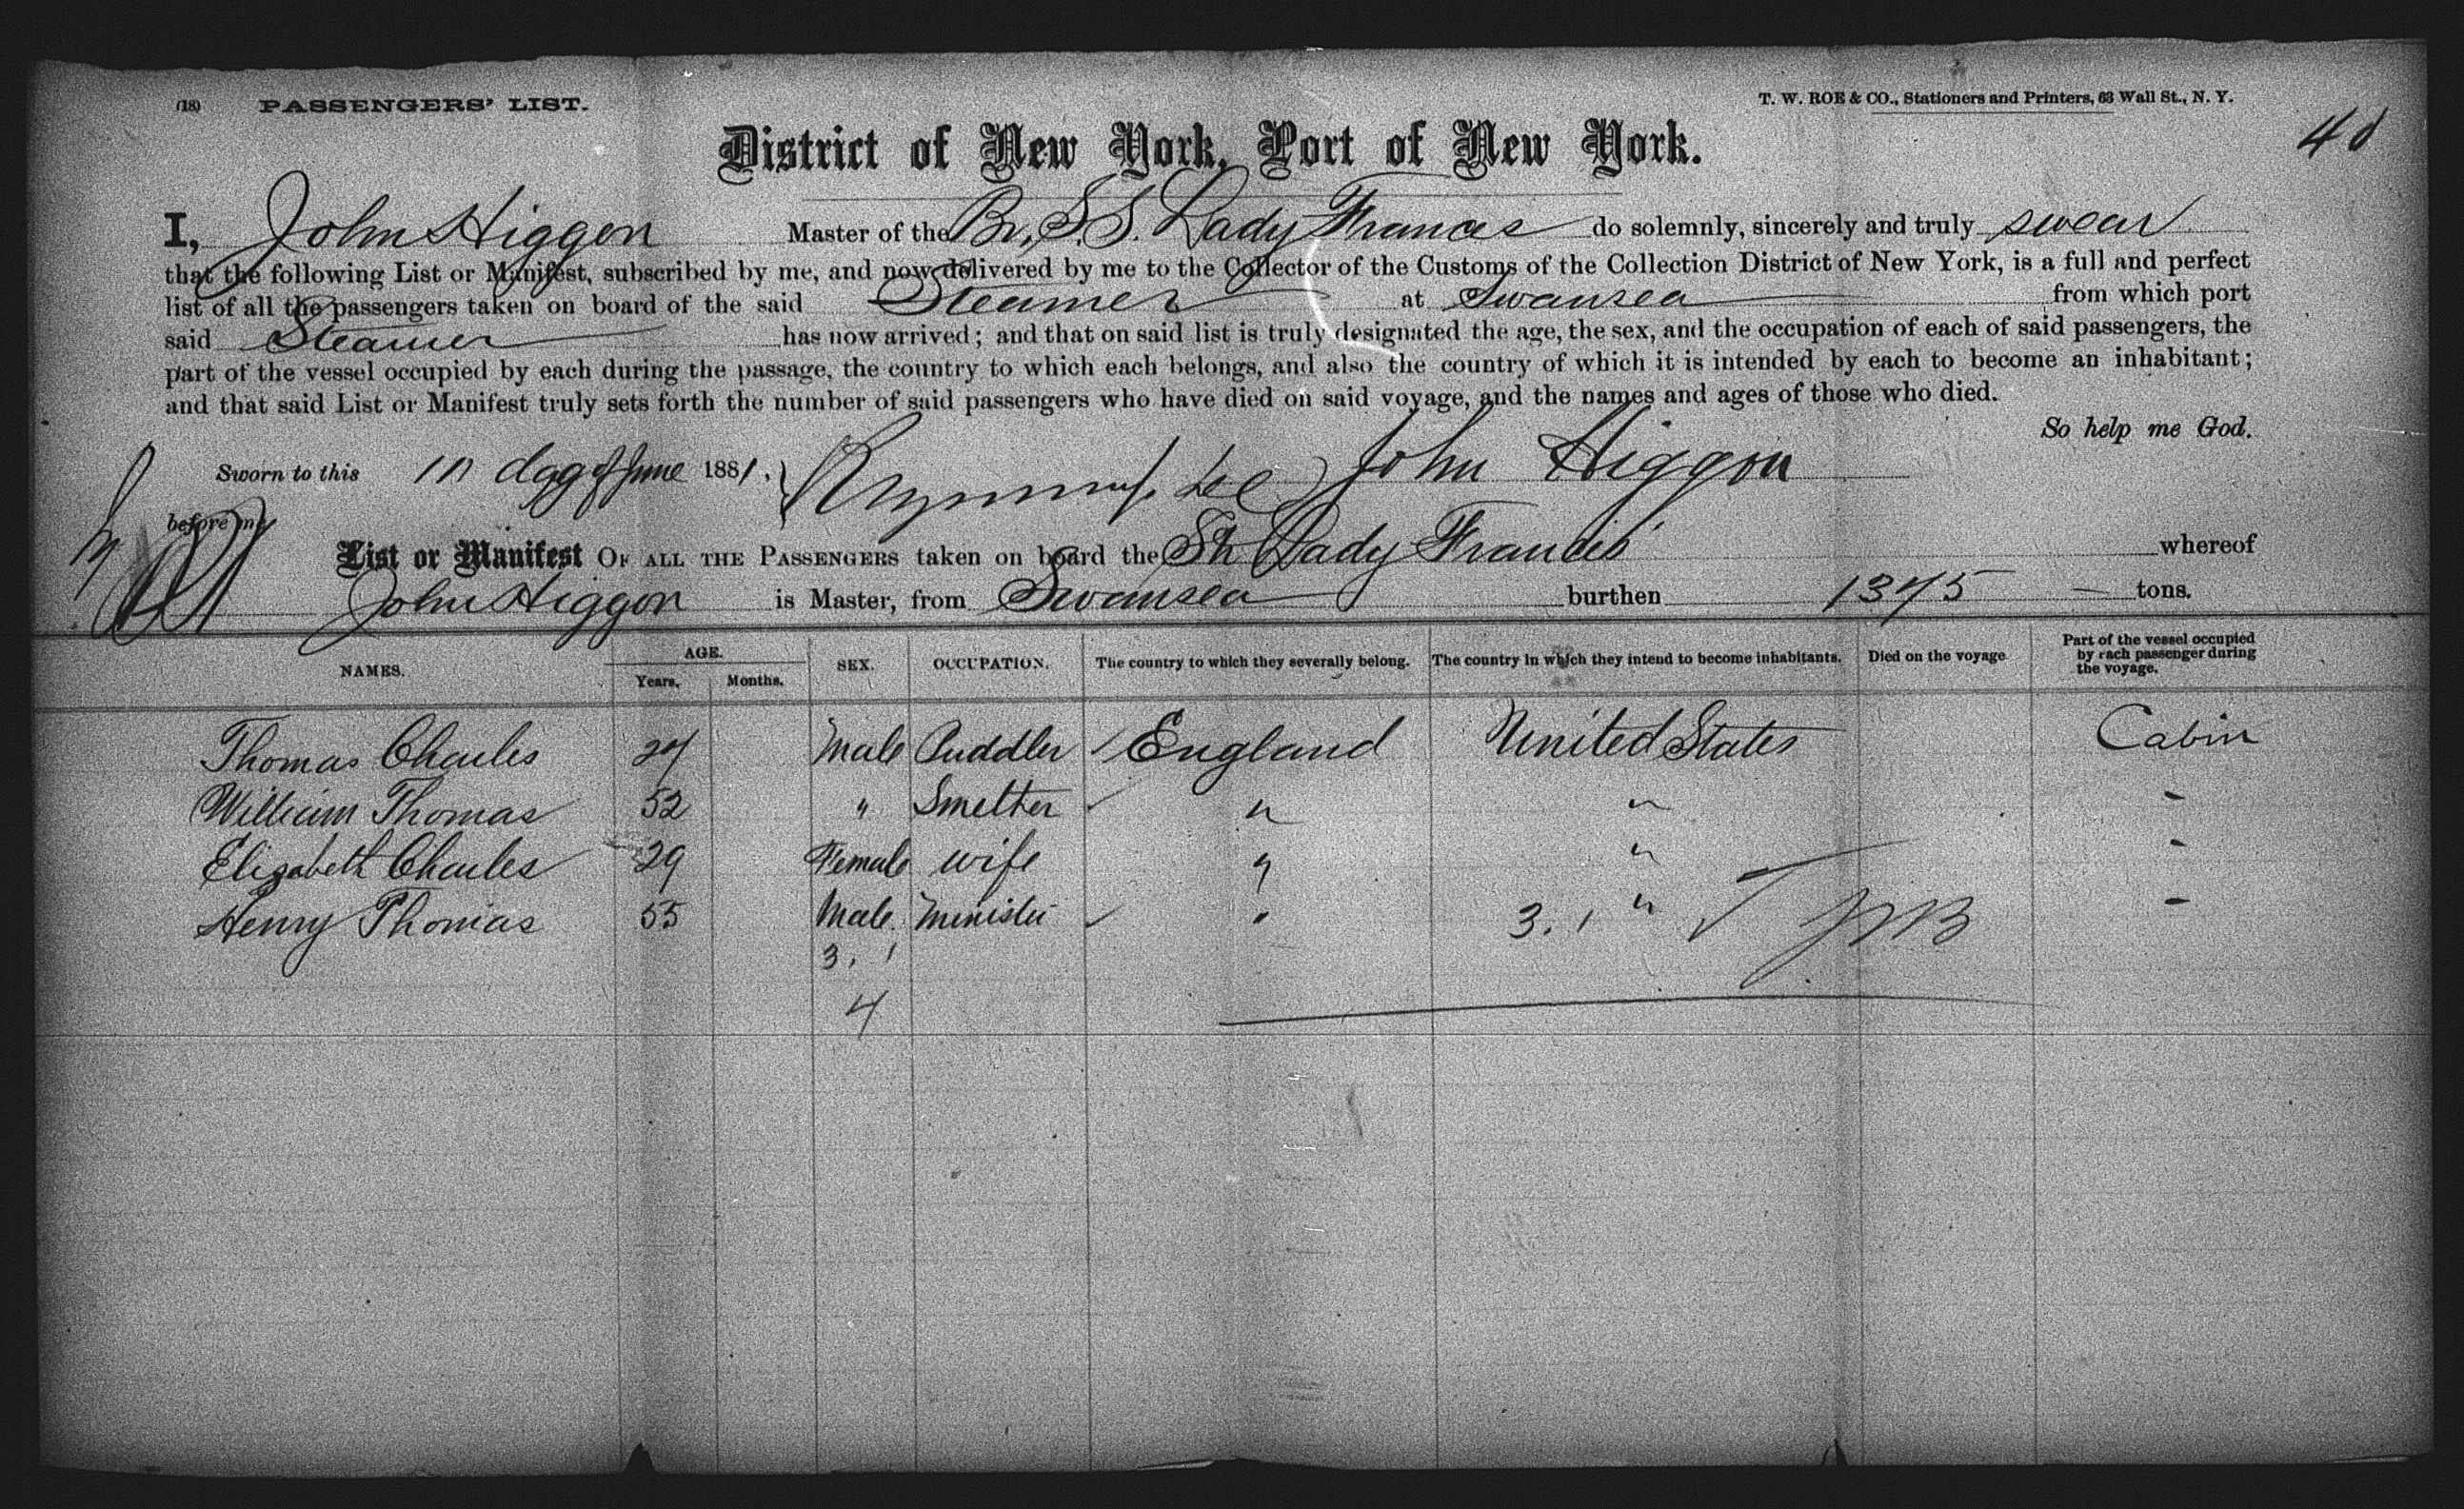 (18) PASSENGERS' LIST.
T. W. ROE & CO., Stationers and Printers, 63 Wall St., N. Y.
District of New York, Port of New York.
I, John Higgon Master of the Br, S.S. Lady Frances do solemnly, sincerely and truly swear
that the following List or Manifest, subscribed by me, and now delivered by me to the Collector of the Customs of the Collection District of New York, is a full and perfect
list of all the passengers taken on board of the said Steamer at Swansea from which port
said Steamer has now arrived; and that on said list is truly designated the age, the sex, and the occupation of each of said passengers, the
part of the vessel occupied by each during the passage, the country to which each belongs, and also the country of which it is intended by each to become an inhabitant;
and that said List or Manifest truly sets forth the number of said passengers who have died on said voyage, and the names and ages of those who died.
So help me God.
Sworn to this day of June 1881. John Higgon
before me
List or Manifest OF ALL THE PASSENGERS taken on board the Lady Francis whereof
John Higgon is Master, from Swansea burthen 1375 tons.
NAMES. AGE. Years. Months. SEX. OCCUPATION. The country to which they severally belong. The country in which they intend to become inhabitants. Died on the voyage Part of the vessel occupied by each passenger during the voyage.
Thomas Charles 27 Male Puddler England United States Cabin
William Thomas 52 " Smelter " " -
Elizabeth Charles 29 Female wife " " -
Henry Thomas 55 Male Minister " 3. 1 " -
3. 1
4